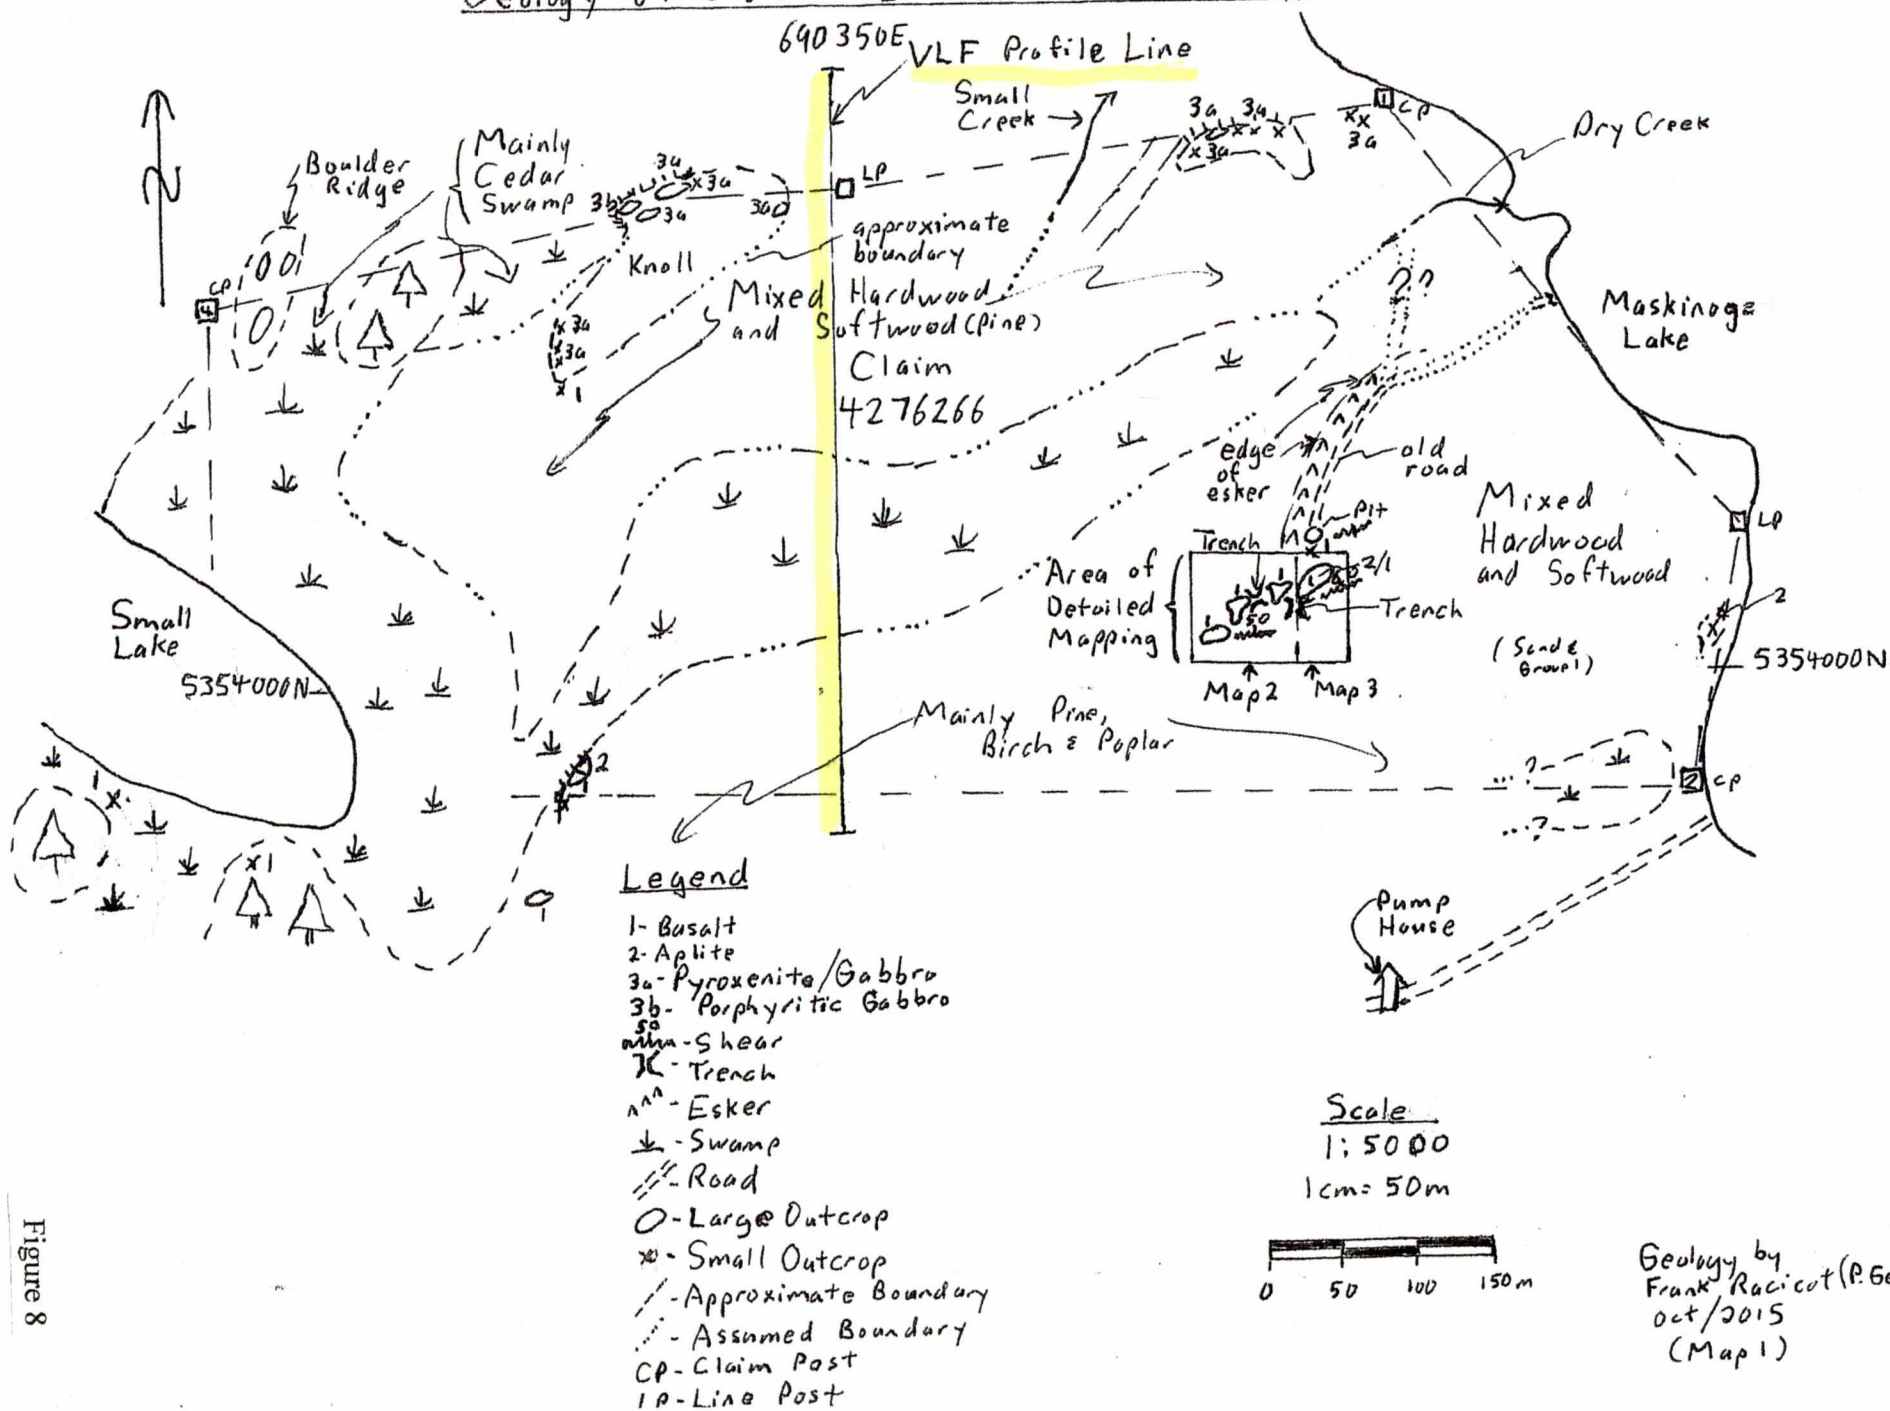 Geology of
690350E
VLF Profile Line
Small
Creek
3a 3a
3a
1 CP
3a
Dry Creek
Boulder
Ridge
Mainly
Cedar
Swamp
3a
3b
3a
3a
3a
LP
Knoll
approximate
boundary
CP
4
Mixed Hardwood
and Softwood (Pine)
3a
3a
1
Claim
4276266
? ?
Maskinoge
Lake
edge
of
esker
old
road
Pit
1
Mixed
Hardwood
and Softwood
LP
Trench
Area of
Detailed
Mapping
1
1
1
50
1
50
2/1
Trench
2
(Sand &
Gravel)
Small
Lake
5354000N
5354000N
Map 2
Map 3
Mainly Pine,
Birch & Poplar
2
1
?
?
2 CP
1
1
1
Pump
House
Legend
1- Basalt
2- Aplite
3a- Pyroxenite/Gabbro
3b- Porphyritic Gabbro
50
- Shear
- Trench
- Esker
- Swamp
- Road
- Large Outcrop
- Small Outcrop
- Approximate Boundary
- Assumed Boundary
CP- Claim Post
LP- Line Post
Scale
1:5000
1cm= 50m
0 50 100 150m
Geology by
Frank Racicot (P. Ge
Oct/2015
(Map 1)
Figure 8